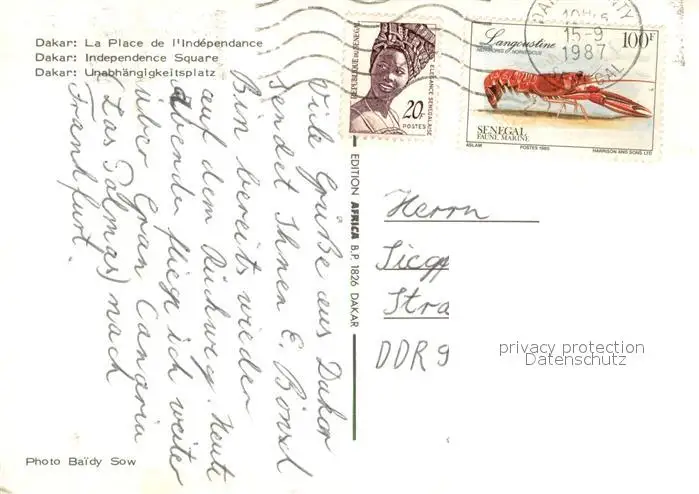 Dakar: La Place de l'Indépendance
Dakar: Independence Square
Dakar: Unabhängigkeitsplatz
Viele Grüße aus Dakar
sendet Ihnen E. Bönzel
Bin bereits wieder
auf dem Rückweg. Heute
abende fliege ich weiter
über Gran Canaria
(Las Palmas) nach
Frankfurt.
Photo Baïdy Sow
EDITION AFRICA B.P. 1826 DAKAR
REPUBLIQUE DU SENEGAL
ELEGANCE SENEGALAISE
20F
POSTES
Langoustine
NEPHROPS NORVEGICUS
100F
SENEGAL
FAUNE MARINE
ASLAM
POSTES
HARRISON AND SONS LTD
15-9
1987
Herrn
Siegf
Stra
DDR 9
privacy protection
Datenschutz